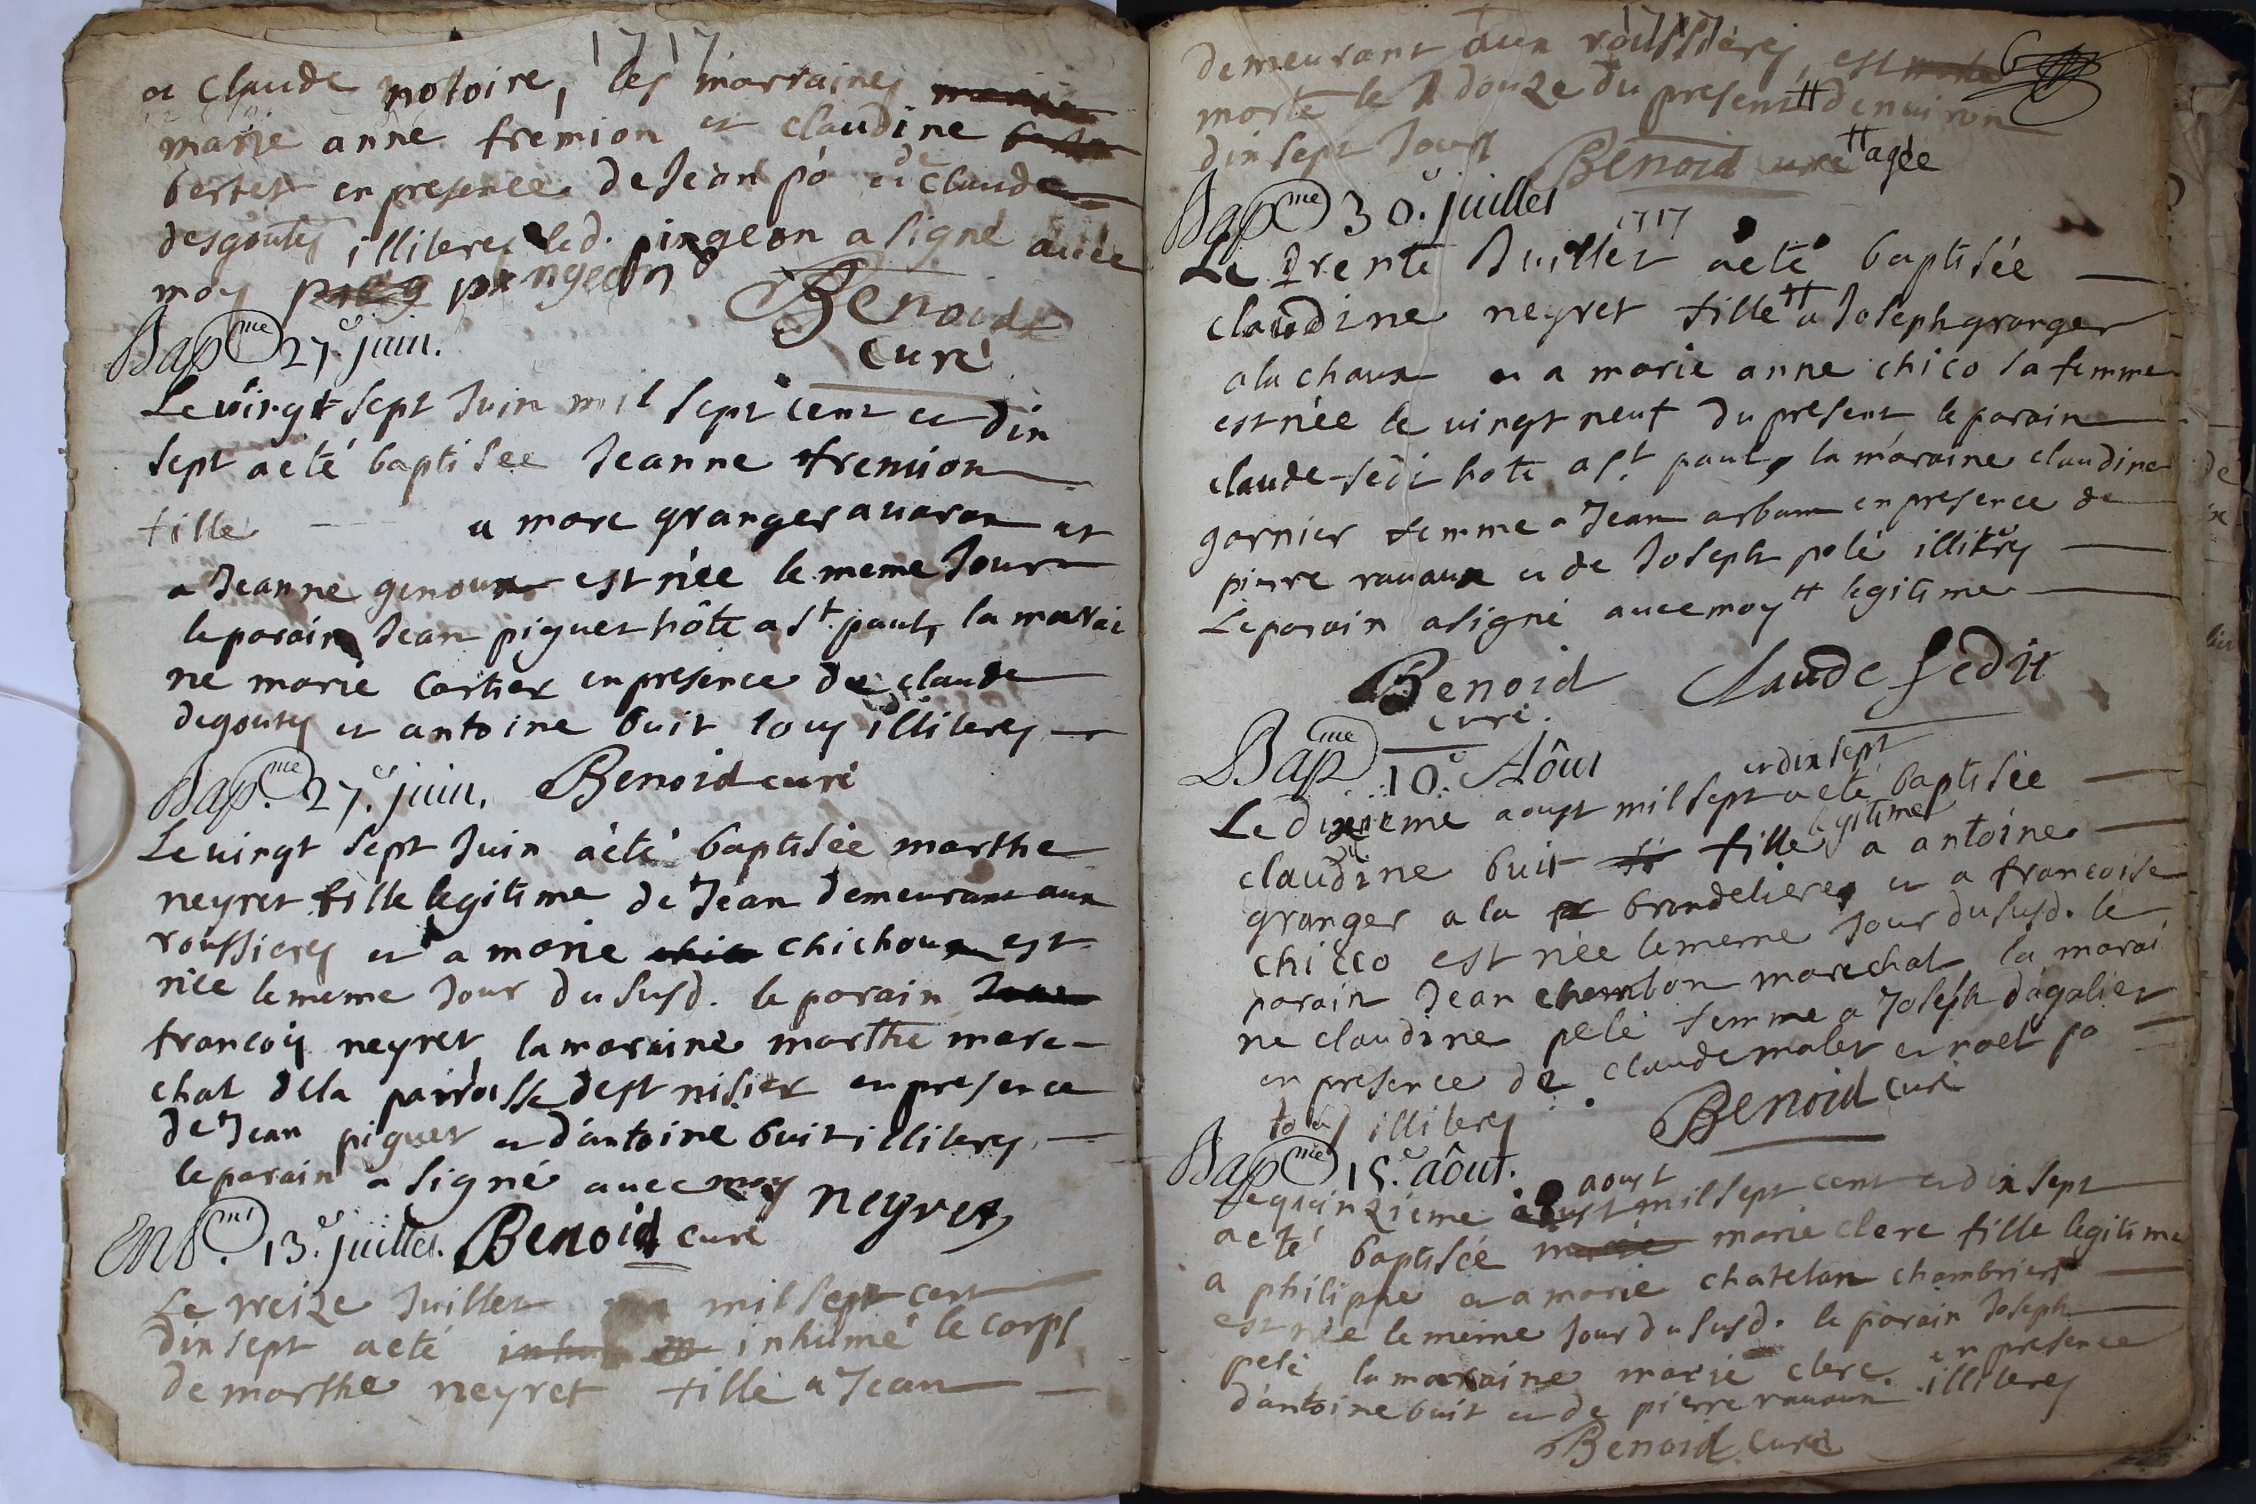 1717
et Claude notoire, les marraines
marie anne fremion et claudine
bertet en presence de Jean pô et de Claude
desgoutes illiteres led. pingeon a signé avec
moy pingeon Benoid
curé
Bapme 27e juin.
Le vingt sept Juin mil sept cent et dix
sept a eté baptisée Jeanne fremion
fille a marc granger a varan et
a Jeanne genoux est née le meme Jour
le parain Jean piguet hôte a St. paul, la marai
ne marie Cartier en presence de claude
degoutes et antoine buit tous illiteres
Bapme. 27e. juin. Benoid curé
Le vingt sept Juin a eté baptisée marthe
neyret fille legitime de Jean demeurant aux
roussieres et a marie chichoux est
née le meme Jour du susd. le parain
francois neyret, la maraine marthe mare-
chal de la parroisse de st nisier en presence
de Jean piguet et d'antoine buit illiteres
le parain a signé avec moy neyret
Enr.mt 13e. juillet. Benoid curé
Le treize Juillet mil sept cent
dix sept a eté inhumé le corps
de marthe neyret fille a Jean
1717
demeurant aux roussieres, est
morte le douze du present ++ d'enuiron
dix sept Jours Benoid curé ++ agée
Bapme 30e. juillet
1717
Le Trente Juillet a eté baptisée
claudine neyret fille ++ a Joseph granger
a la chaux et a marie anne chico sa femme
est née le vingt neuf du present le parain
claude sedi hote a St. paul, la maraine claudine
garnier femme a Jean arban en presence de
pierre ravaux et de Joseph pelé illiteres
Le parain a signé avec moy ++ legitime
Benoid Claude sedit
curé.
Bapme 10e Aôut
et dix sept
Le dixieme aoust mil sept a eté baptisée
claudine buit fille legitime a antoine
granger a la brondelieres et a francoise
chicco est née le meme Jour du susd. le
parain Jean chambon marechal la marai
ne claudine pelé femme a Joseph dagalier
en presence de claude malet et noel po
tous illiteres Benoid curé
Bapme 15e. aôut.
Le quinzieme aoust mil sept cent et dix sept
a eté baptisée marie clere fille legitime
a philippe et a marie chatelan chambriere
est née le meme Jour du susd. le parain Joseph
pelé la maraine marie clerc. en presence
d'antoine buit et de pierre ravaux illiteres
Benoid curé